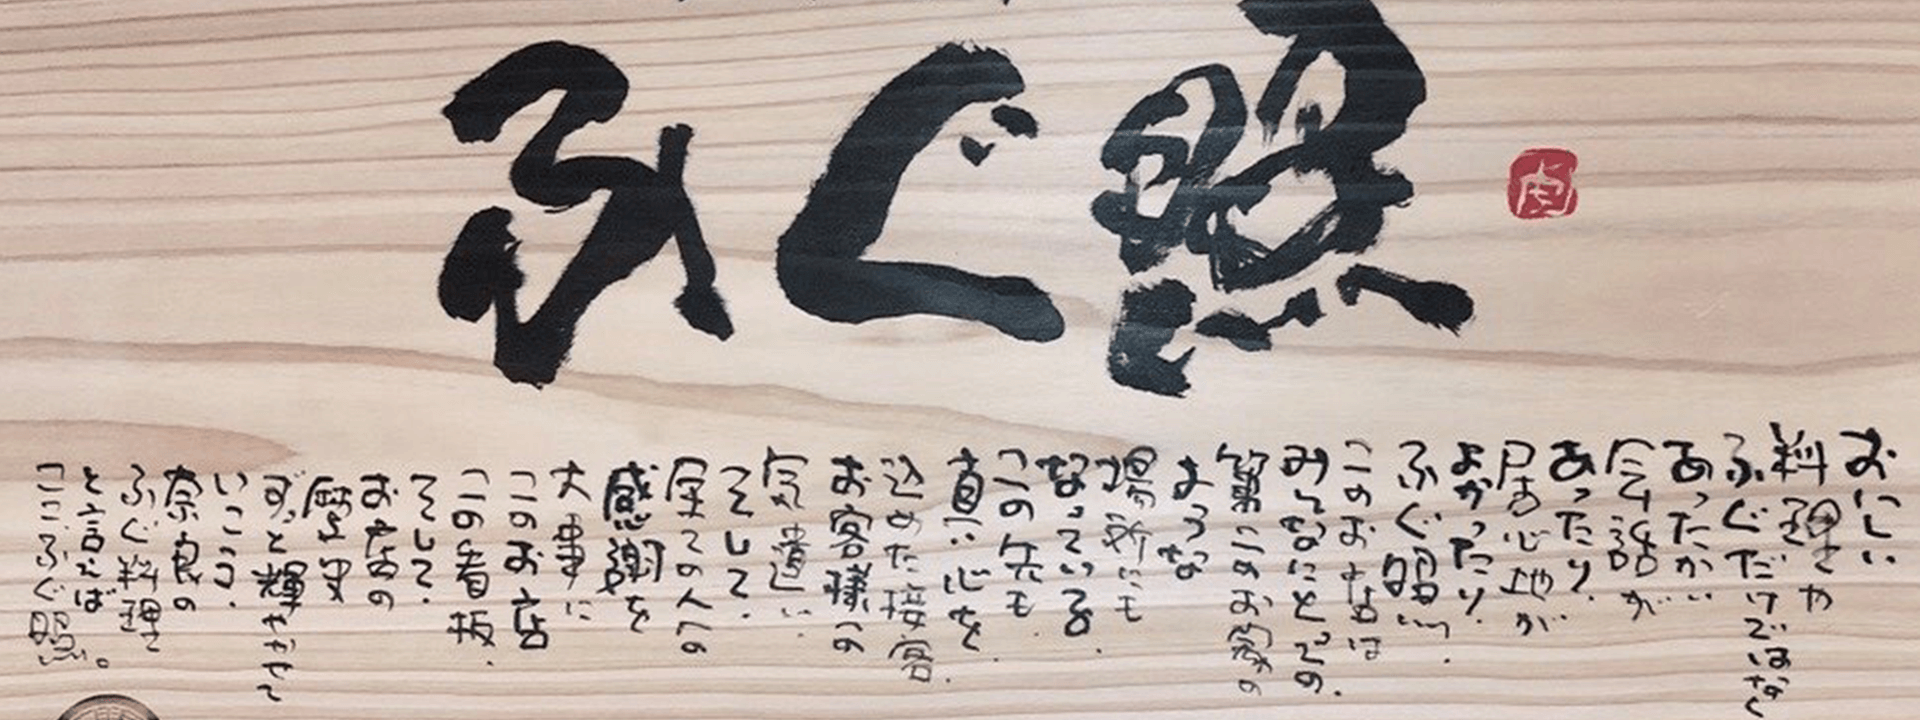 ふぐ照
おいしい
料理や
ふぐだけではなく
あったかい
会話が
あったり.
居心地が
よかったり.
ふぐ照.
このお店は
みんなにとっての.
第二のお家の
ような
場所にも
なっている.
この先も.
真心を
込めた接客.
お客様への
気遣い.
そして.
全ての人への
感謝を
大事に
このお店
この看板.
そして.
お店の
歴史
ずっと輝かせて
いこう.
奈良の
ふぐ料理
と言えば
ここふぐ照。